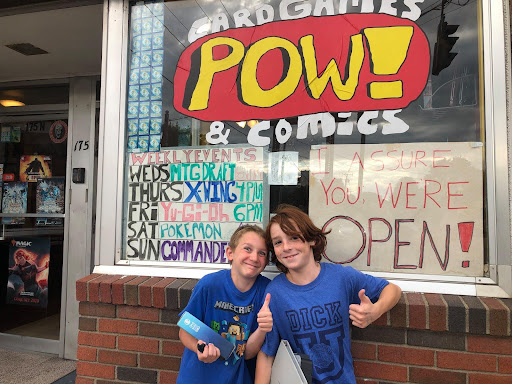 CARDGAMES
POW!
& COMICS
WEEKLY EVENTS
WEDS MTG DRAFT
THURS X-WING 4PM
FRI Yu-Gi-Oh 6PM
SAT POKEMON
SUN COMMANDE
I ASSURE
YOU WERE
OPEN!
175
MAGIC
MINECRAFT
DICK